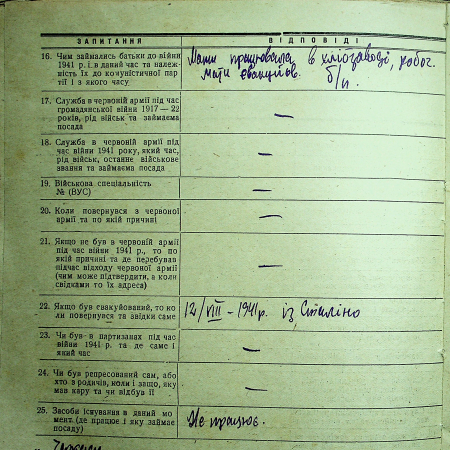 ЗАПИТАННЯ
ВІДПОВІДІ
16. Чим займались батьки до війни
1941 р. і в даний час та належ-
ність їх до комуністичної пар
тії і з якого часу
Мати працювала в хлібзаводі, робог.
мати евакуйов. б/п.
17. Служба в червоній армії під час
громадянської війни 1917—22
років, рід військ та займаєма
посада
—
18. Служба в червоній армії під
час війни 1941 року, який час,
рід військ, останнє військове
звання та займаєма посада
—
19. Військова спеціальність
№ (ВУС)
—
20. Коли повернувся з червоної
армії та по якій причині
—
21. Якщо не був в червоній армії
під час війни 1941 р., то по
якій причині та де перебував
підчас відходу червоної армії
(чим може підтвердити, а коли
свідками то їх адреса)
—
22. Якщо був евакуйований, то ко
ли повернувся та звідки саме
12/VIII - 1941 р. із Сталіно
23. Чи був в партизанах під час
війни 1941 р. та де саме і
який час
—
24. Чи був репресований сам, або
хто з родичів, коли і защо, яку
мав кару та чи відбув її
—
25. Засоби існування в даний мо
мент (де працює і яку займає
посаду)
Не працює.